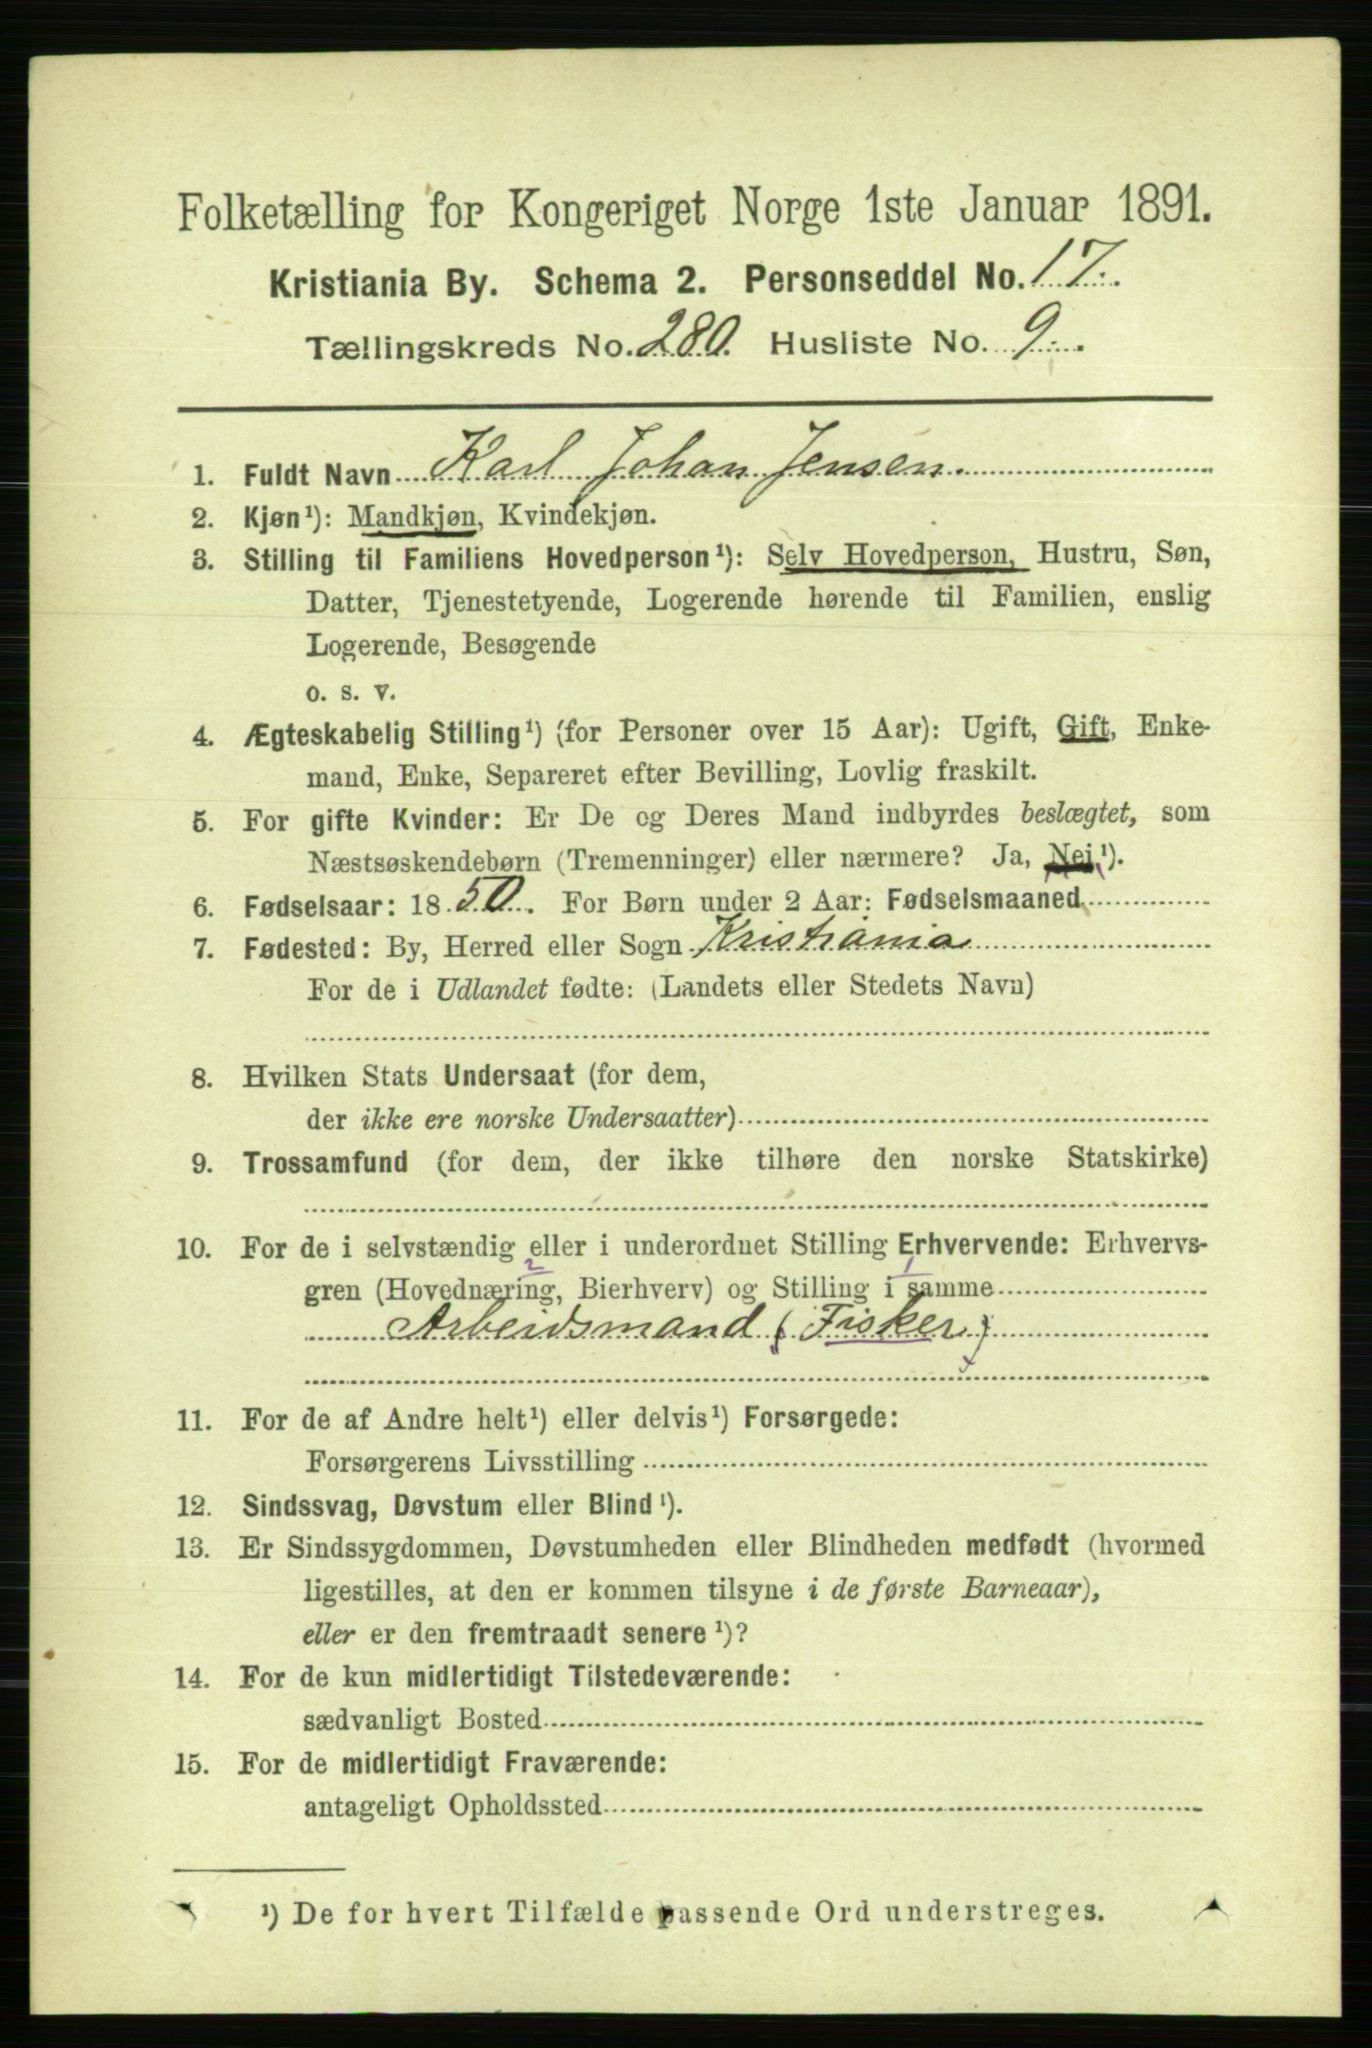 Folketælling for Kongeriget Norge 1ste Januar 1891.
Kristiania By. Schema 2. Personseddel No. 17.
Tællingskreds No. 280. Husliste No. 9.
1. Fuldt Navn Karl Johan Jensen.
2. Kjøn¹): Mandkjøn, Kvindekjøn.
3. Stilling til Familiens Hovedperson¹): Selv Hovedperson, Hustru, Søn,
Datter, Tjenestetyende, Logerende hørende til Familien, enslig
Logerende, Besøgende
o. s. v.
4. Ægteskabelig Stilling¹) (for Personer over 15 Aar): Ugift, Gift, Enke-
mand, Enke, Separeret efter Bevilling, Lovlig fraskilt.
5. For gifte Kvinder: Er De og Deres Mand indbyrdes beslægtet, som
Næstsøskendebørn (Tremenninger) eller nærmere? Ja, Nej¹).
6. Fødselsaar: 1850. For Børn under 2 Aar: Fødselsmaaned
7. Fødested: By, Herred eller Sogn Kristiania
For de i Udlandet fødte: (Landets eller Stedets Navn)
8. Hvilken Stats Undersaat (for dem,
der ikke ere norske Undersaatter)
9. Trossamfund (for dem, der ikke tilhøre den norske Statskirke)
10. For de i selvstændig eller i underordnet Stilling Erhvervende: Erhvervs-
2 1
gren (Hovednæring, Bierhverv) og Stilling i samme
Arbeidsmand (Fisker)
11. For de af Andre helt¹) eller delvis¹) Forsørgede:
Forsørgerens Livsstilling
12. Sindssvag, Døvstum eller Blind¹).
13. Er Sindssygdommen, Døvstumheden eller Blindheden medfødt (hvormed
ligestilles, at den er kommen tilsyne i de første Barneaar),
eller er den fremtraadt senere¹)?
14. For de kun midlertidigt Tilstedeværende:
sædvanligt Bosted
15. For de midlertidigt Fraværende:
antageligt Opholdssted
¹) De for hvert Tilfælde passende Ord understreges.